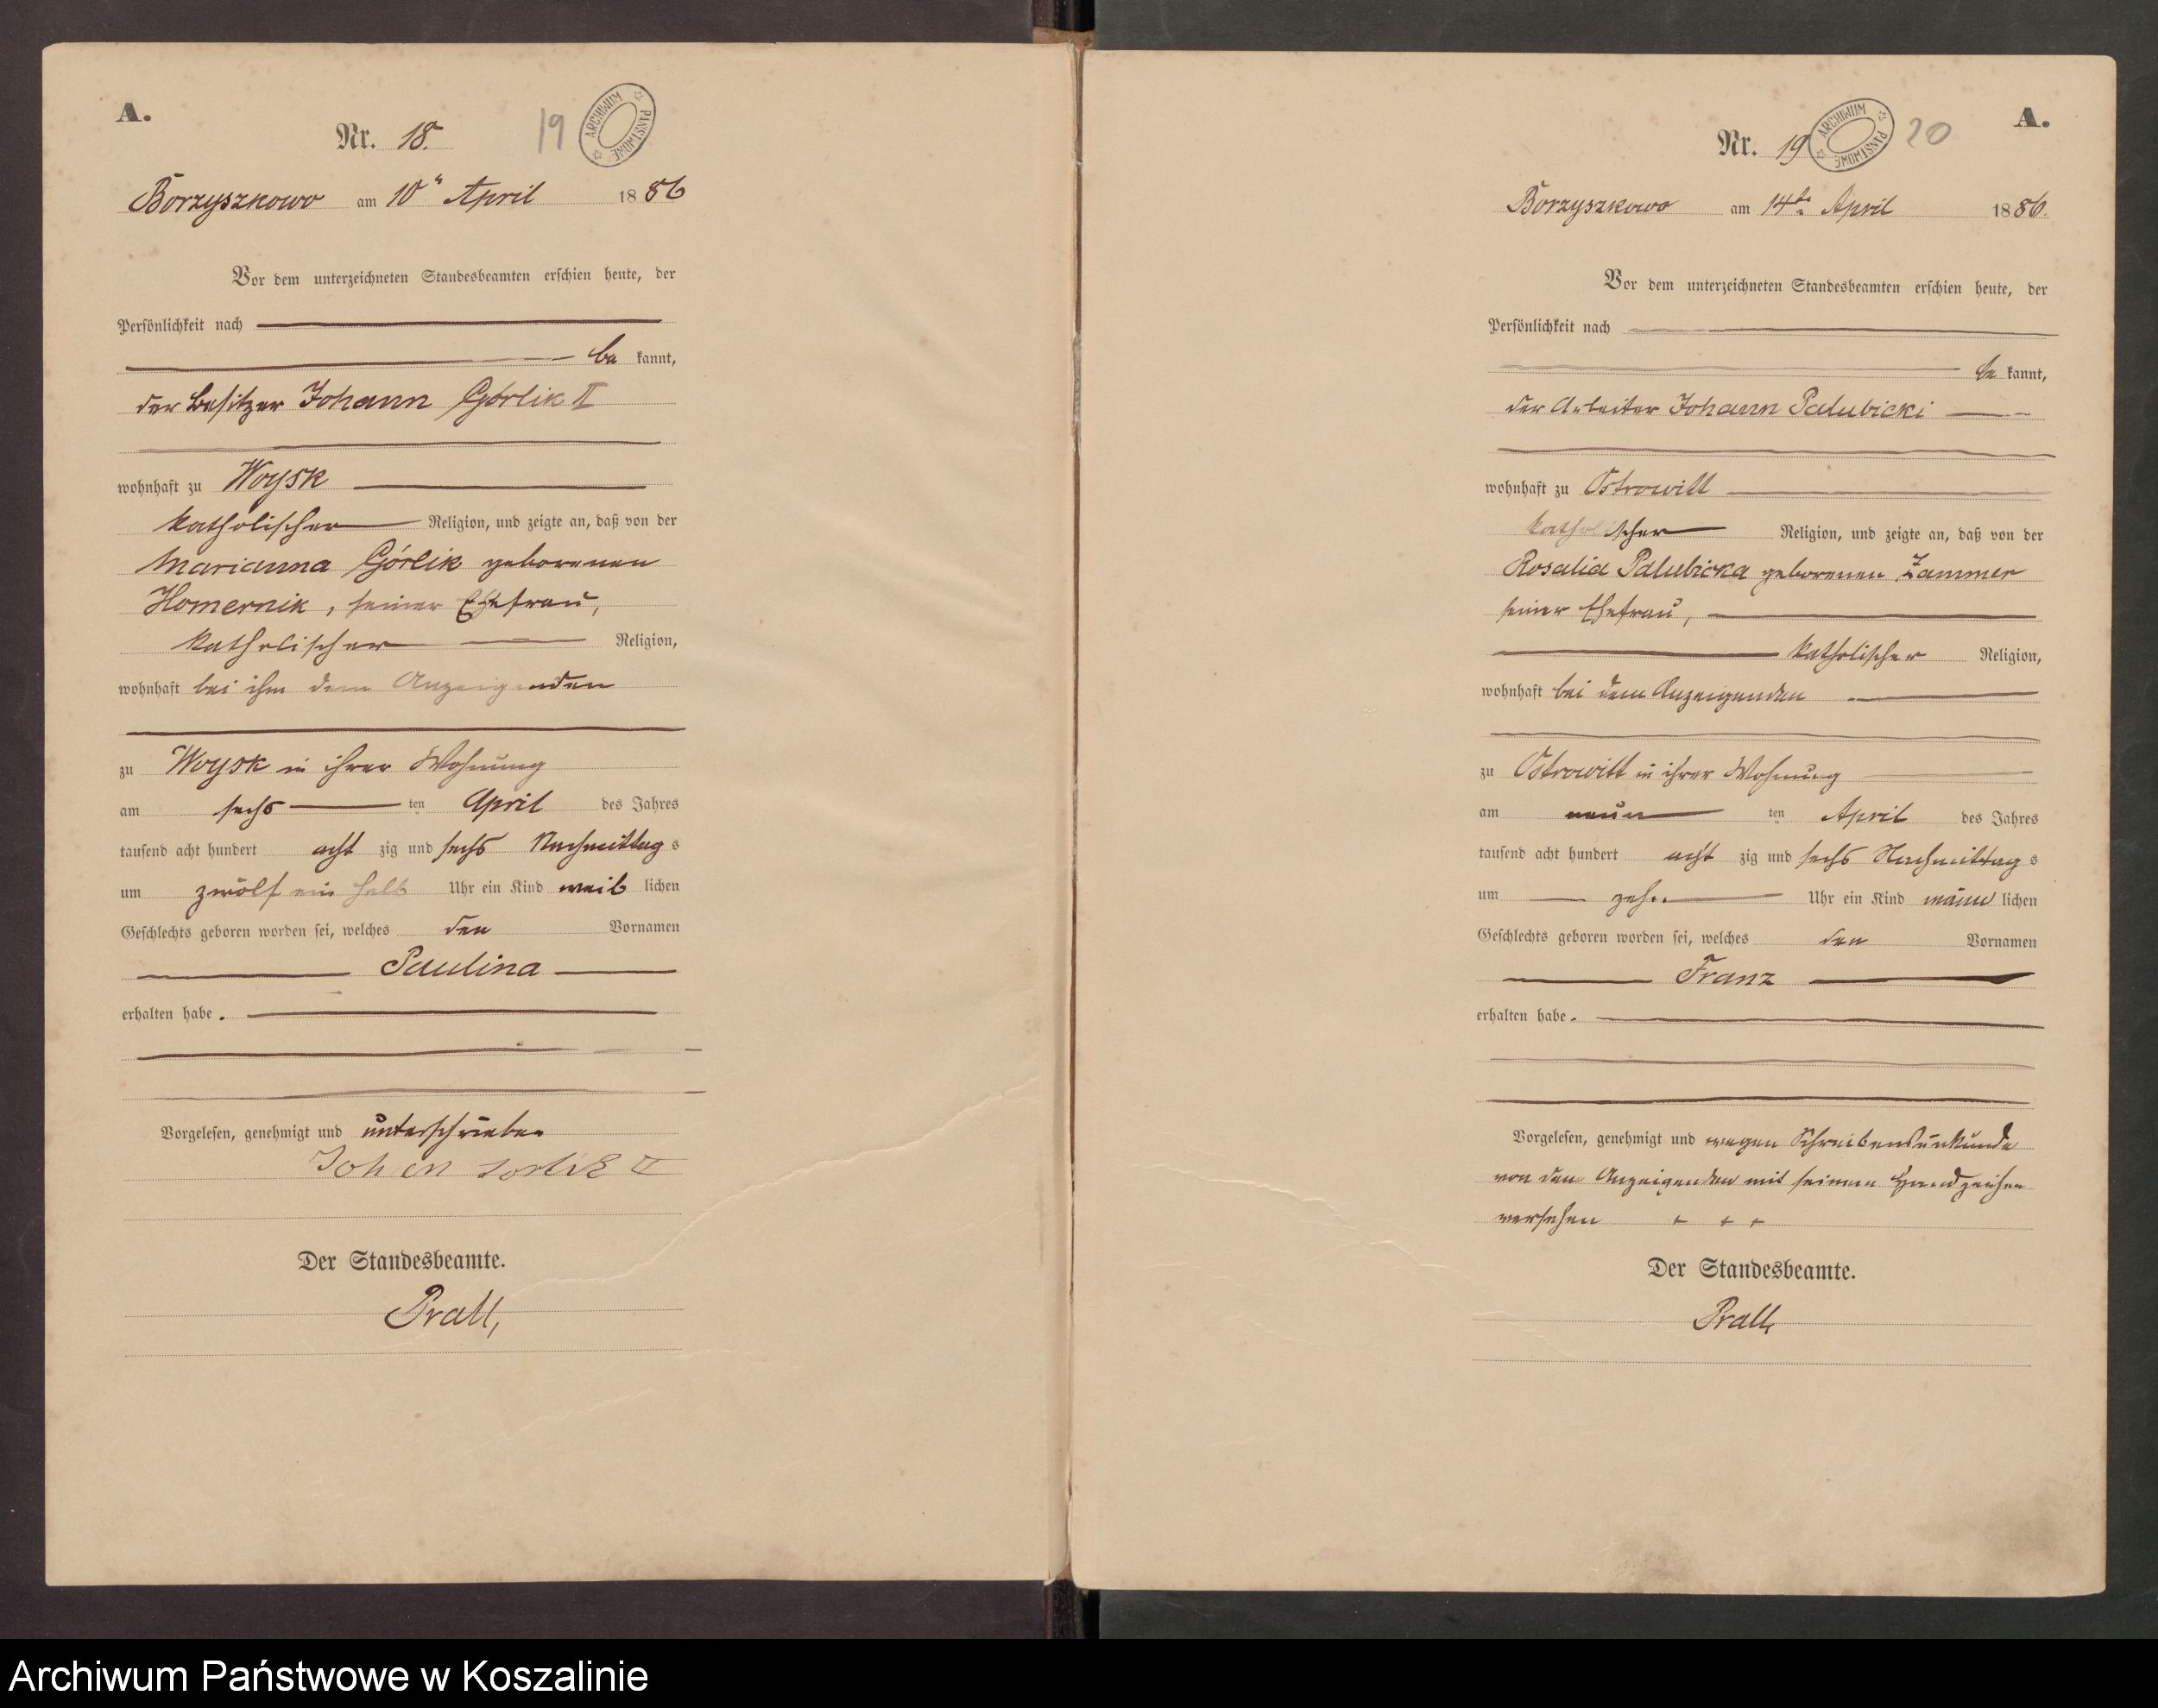 A.
Nr. 18.
19
ARCHIWUM PAŃSTWOWE
Borzyszkowo am 10" April 1886
Vor dem unterzeichneten Standesbeamten erschien heute, der
Persönlichkeit nach
be kannt,
der Besitzer Johann Górlik II
wohnhaft zu Woysk
katholischer Religion, und zeigte an, daß von der
Marianna Górlik geborenen
Homernik, seiner Ehefrau,
katholischer Religion,
wohnhaft bei ihm dem Anzeigenden
zu Woysk in ihrer Wohnung
am sechs ten April des Jahres
tausend acht hundert acht zig und sechs Nachmittag s
um zwölf ein halb Uhr ein Kind weib lichen
Geschlechts geboren worden sei, welches den Vornamen
Paulina
erhalten habe.
Vorgelesen, genehmigt und unterschrieben
Johan Gorlik II
Der Standesbeamte.
Prall,
A.
Nr. 19
20
ARCHIWUM PAŃSTWOWE
Borzyszkowo am 14te April 1886.
Vor dem unterzeichneten Standesbeamten erschien heute, der
Persönlichkeit nach
be kannt,
der Arbeiter Johann Palubicki
wohnhaft zu Ostrowitt
katholischer Religion, und zeigte an, daß von der
Rosalia Palubicka geborenen Zammer
seiner Ehefrau,
katholischer Religion,
wohnhaft bei dem Anzeigenden
zu Ostrowitt in ihrer Wohnung
am neun ten April des Jahres
tausend acht hundert acht zig und sechs Nachmittag s
um zehn Uhr ein Kind männ lichen
Geschlechts geboren worden sei, welches den Vornamen
Franz
erhalten habe.
Vorgelesen, genehmigt und wegen Schreibensunkunde
von dem Anzeigenden mit seinem Handzeichen
versehen + + +
Der Standesbeamte.
Prall,
Archiwum Państwowe w Koszalinie